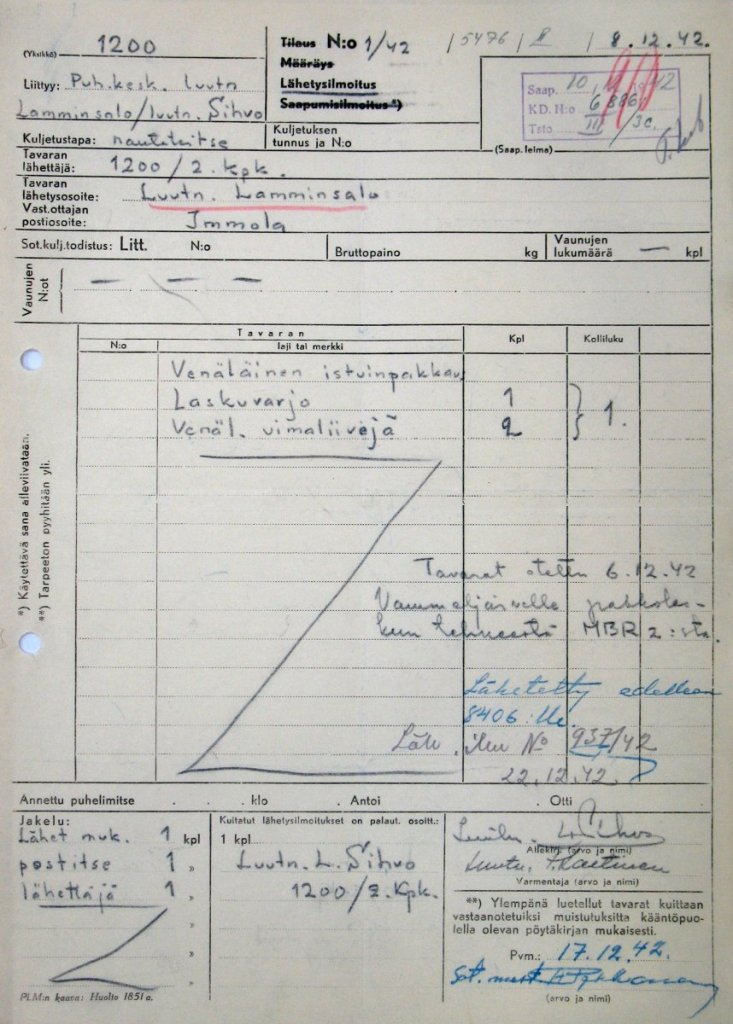 (Yksikkö) 1200
Tilaus N:o 1/42
15476 / II / 8.12.42.
Määräys
Liittyy: Puh.kesk. luutn
Lähetysilmoitus
Lamminsalo/luutn. Sihvo
Saapumisilmoitus *)
Saap. 10. 42
KD. N:o 6886
Tsto III /3c.
(Saap. leima)
Kuljetustapa: rautateitse
Kuljetuksen tunnus ja N:o
Tavaran lähettäjä: 1200/2. Kpk.
Tavaran lähetysosoite: Luutn. Lamminsalo
Vast.ottajan postiosoite: Immola
Sot.kulj.todistus: Litt. N:o
Bruttopaino kg
Vaunujen lukumäärä — kpl
Vaunujen N:ot — — —
Tavaran
N:o laji tai merkki Kpl Kolliluku
Venäläinen istuinpakkaus
Laskuvarjo 1
Venäl. uimaliivejä 2 } 1.
*) Käytettävä sana alleviivataan.
**) Tarpeeton pyyhitään yli.
Tavarat otettu 6.12.42
Vammeljärvelle pakkolas-
kun tehneestä MBR 2:sta.
Lähetetty edelleen
8406:lle.
Läh. ilm N° 937/42
22.12.42.
Annettu puhelimitse . . klo . Antoi . Otti
Jakelu:
Lähet muk. 1 kpl
postitse 1 „
lähettäjä 1 „
„
„
PLM:n kaava: Huolto 1851 a.
Kuitatut lähetysilmoitukset on palaut. osoitt.:
1 kpl
Luutn. L. Sihvo
1200/2. Kpk.
Luutn. L. Sihvo
Allekirj. (arvo ja nimi)
Luutn.
Varmentaja (arvo ja nimi)
**) Ylempänä luetellut tavarat kuitataan
vastaanotetuiksi muistutuksitta kääntöpuo-
lella olevan pöytäkirjan mukaisesti.
Pvm.: 17.12.42.
Sot. mest.
(arvo ja nimi)